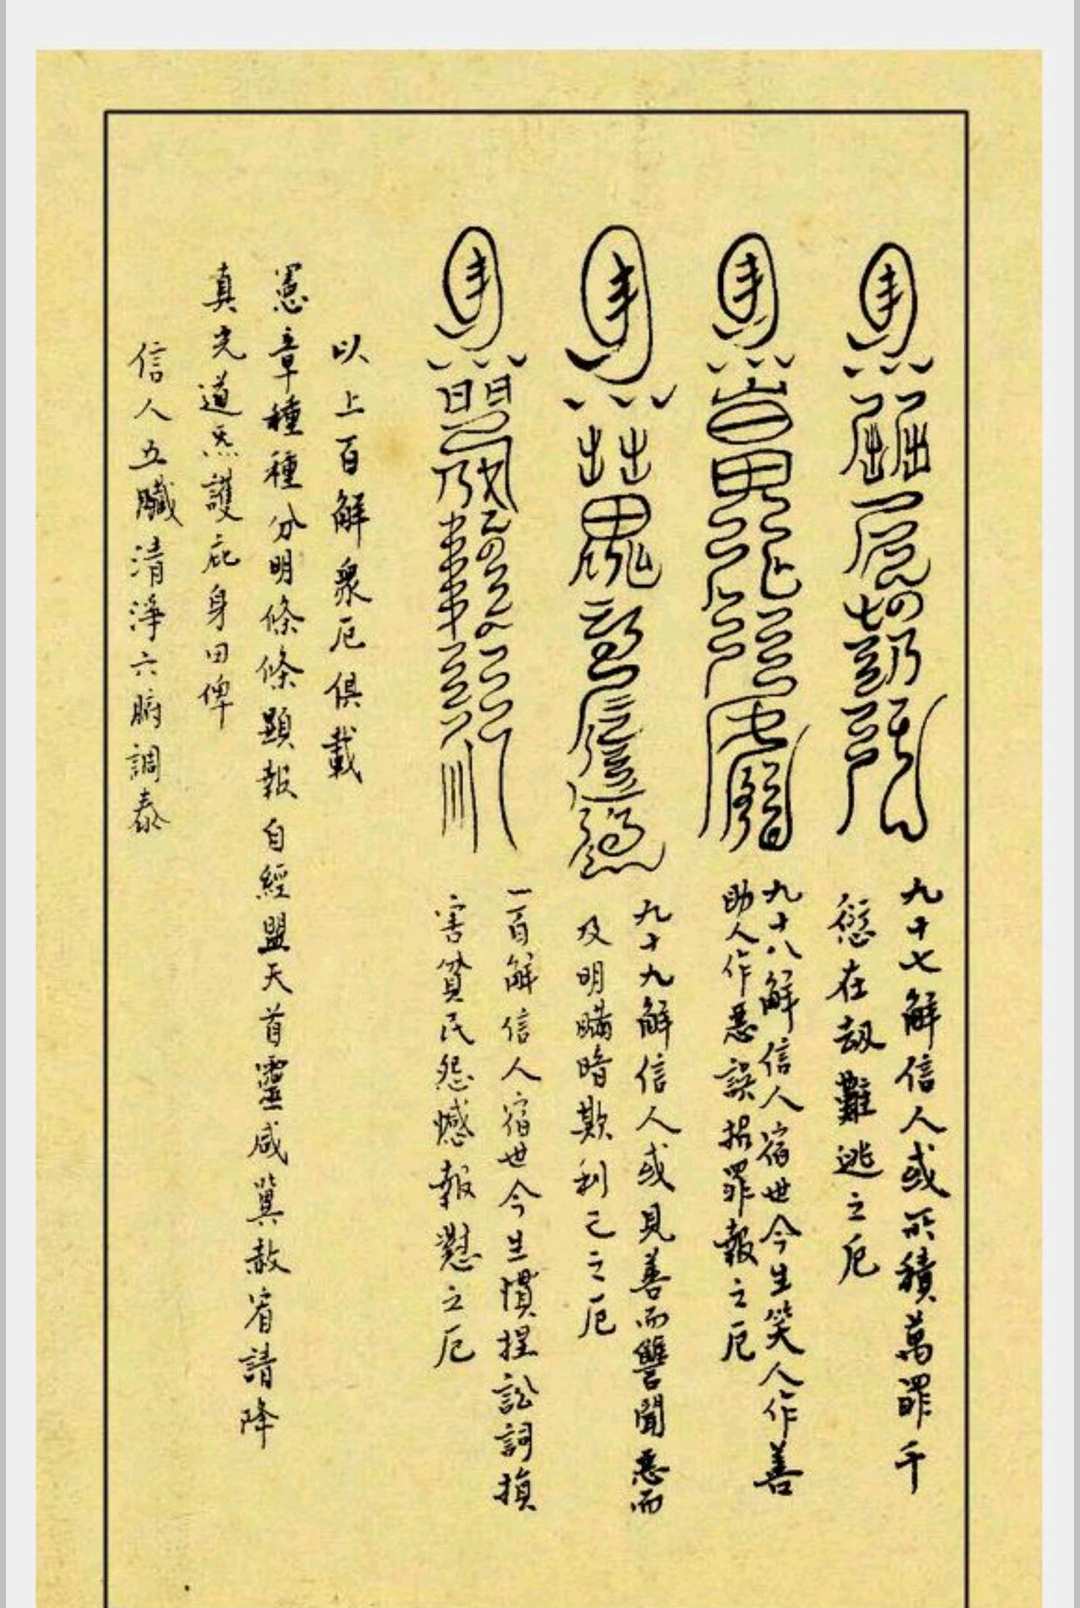 九十七解信人或所積萬罪千
愆在劫難逃之厄
九十八解信人宿世今生笑人作善
助人作惡誤招罪報之厄
九十九解信人或見善而讐聞惡而
及明瞞暗欺利己之厄
一百解信人宿世今生慣捏訟詞損
害貧民怨憾報懟之厄
以上百解衆厄俱載
憲章種種分明條條顯報自經盟天首靈咸冀赦宥請降
真光道炁護庇身田俾
信人五臟清淨六腑調泰